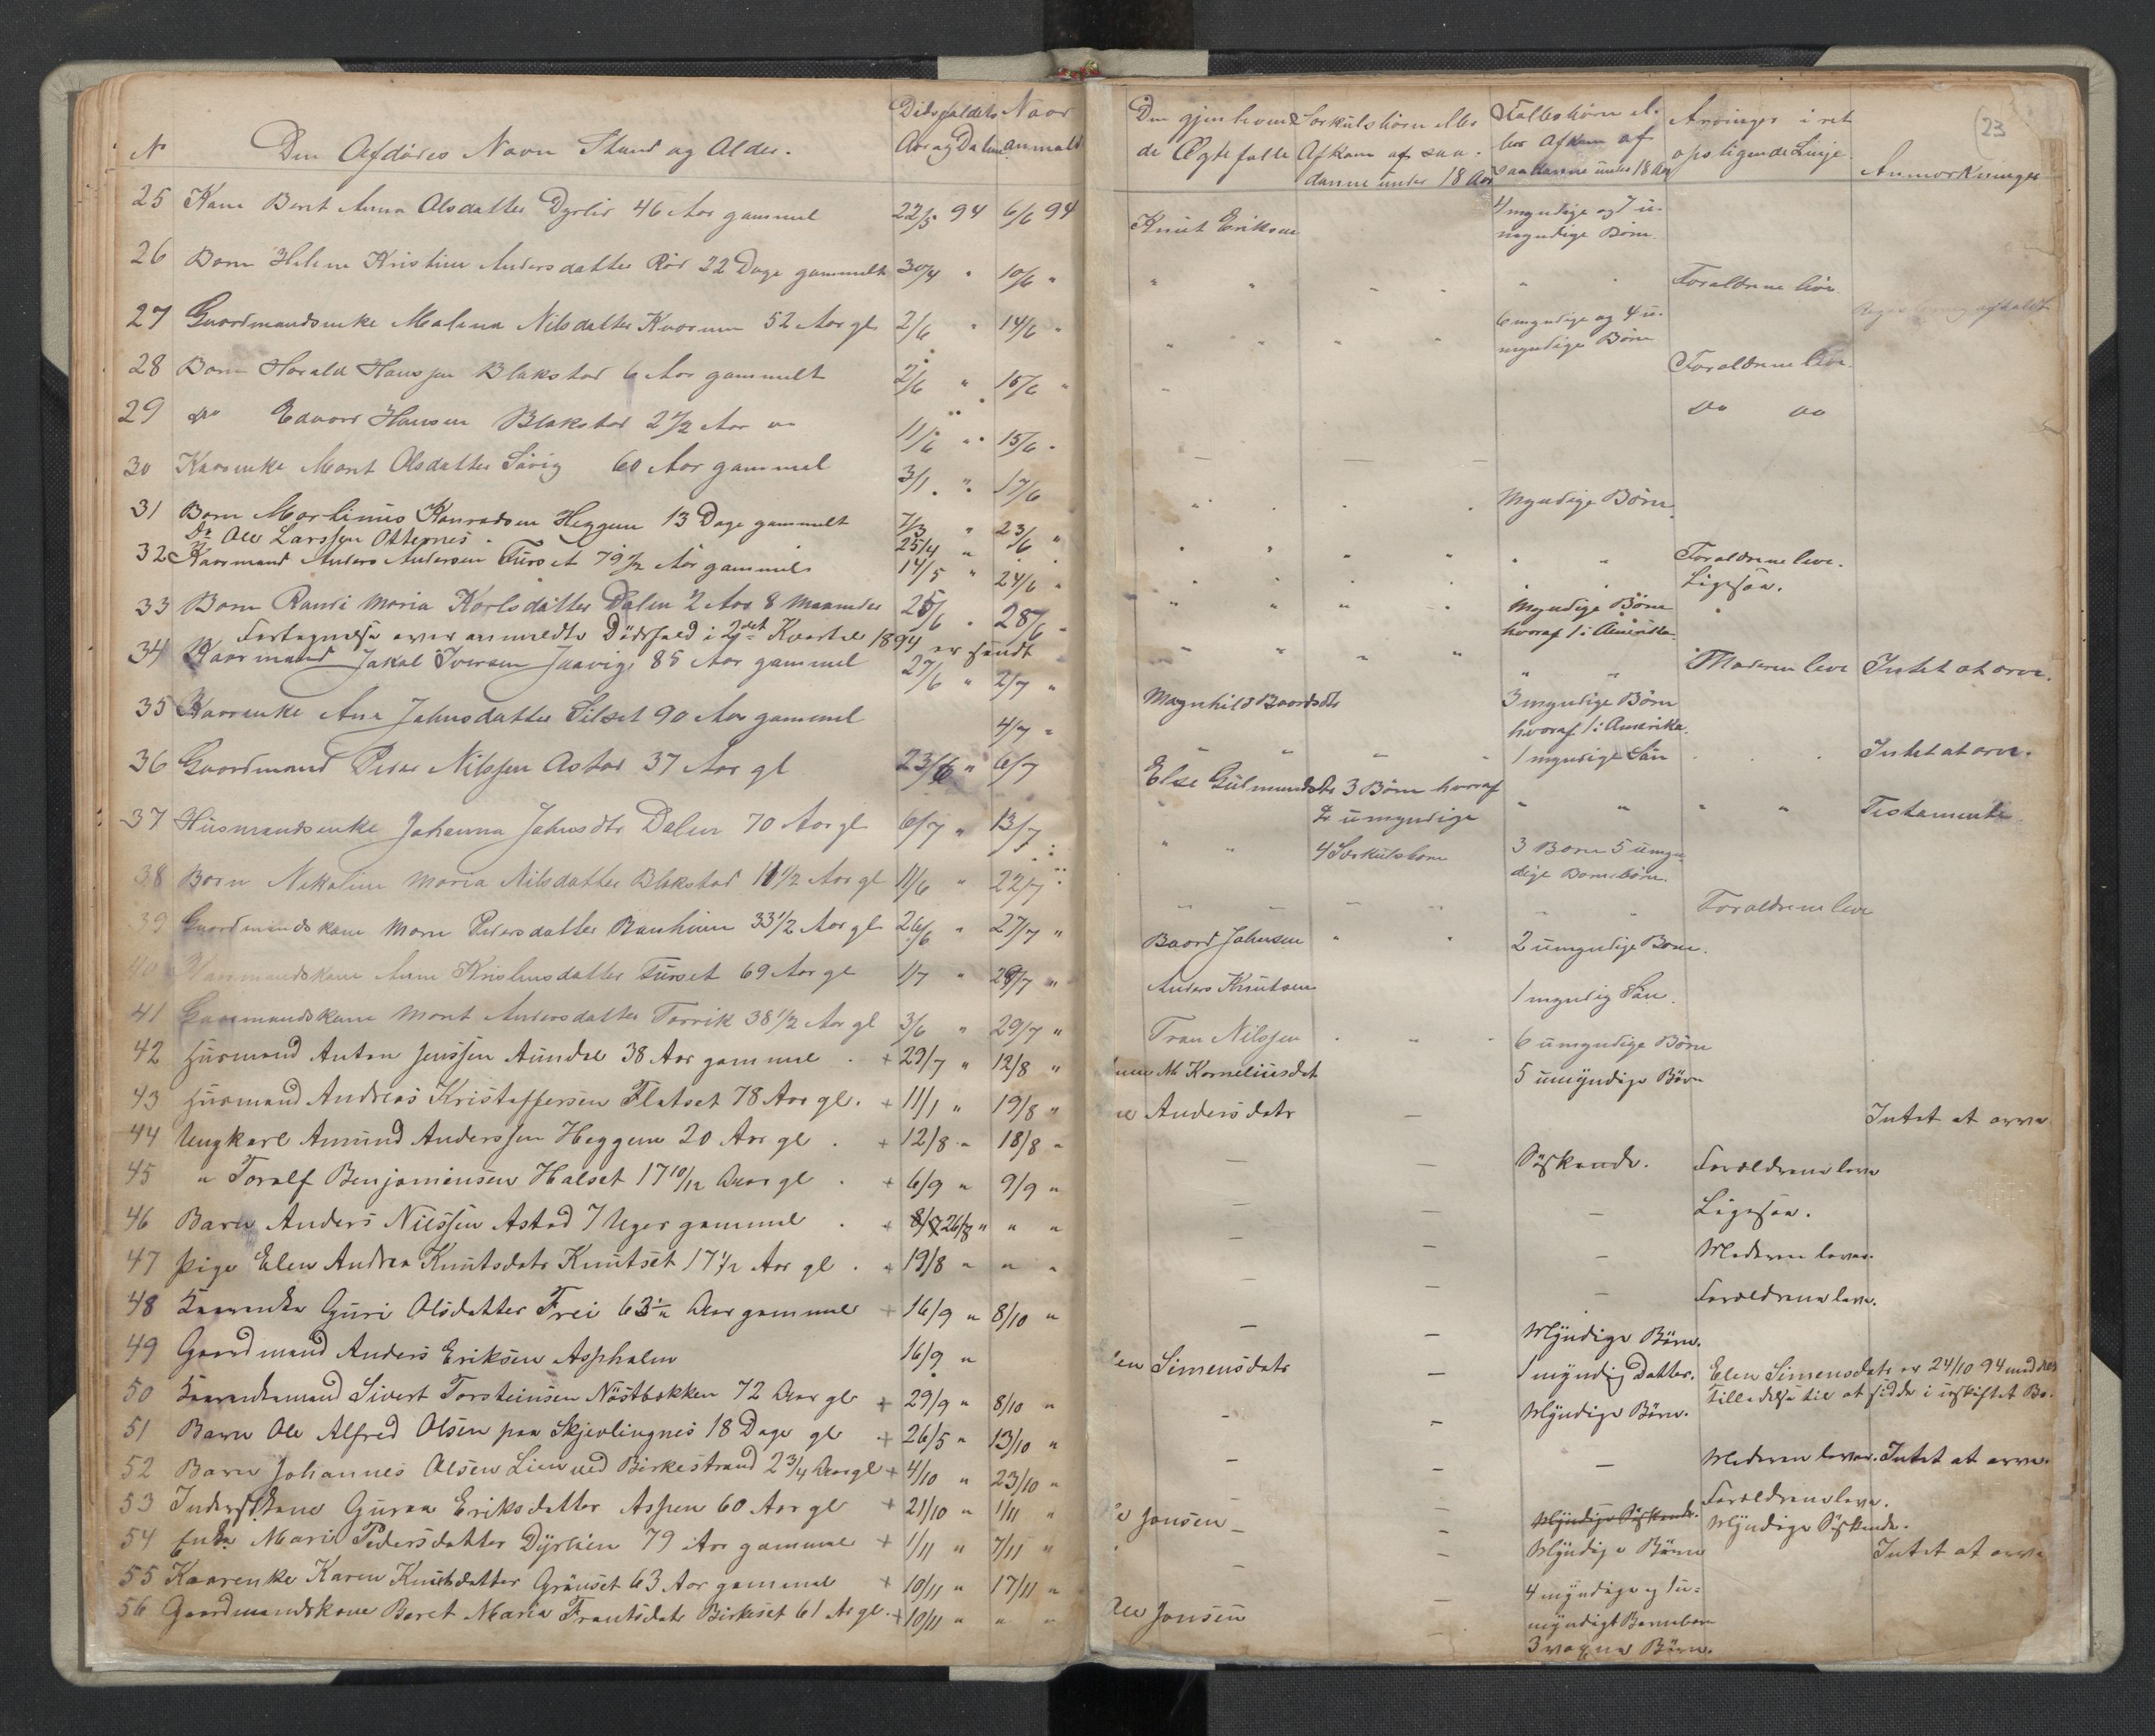 Dødsfaldets Naar
N Den Afdødes Navn Stand og Alder. Aar og Datum anmeldt
25 Kone Berit Anna Olsdatter Dyrlid 46 Aar gammel 22/5 94 6/6 94
26 Barn Helene Kristine Andersdatter Rød 22 Dage gammelt 30/4 " 10/6 "
27 Gaardmandsenke Malena Nilsdatter Kvornes 52 Aar gl 2/6 " 14/6 "
28 Barn Harald Hansen Blakstad 6 Aar gammelt 2/6 " 15/6 "
29 do Edvard Hansen Blakstad 2 1/2 Aar 11/6 " 15/6 "
30 Kaarenke Marit Olsdatter Sivig 60 Aar gammel 3/1 " 17/6
31 Barn Martinus Konradsen Heggem 13 Dage gammelt 7/3 " 23/6 "
Do Ole Larssen Otternes 25/4 "
32 Kaarmand Anders Andersen Turset 79 1/2 Aar gammel 14/5 " 24/6 "
33 Barn Randi Maria Karlsdatter Dalen 2 Aar 8 Maaneder 25/6 " 28/6 "
Fortegnelse over anmeldte Dødsfald i 2det Kvartal 1894 er sendt
34 Kaarmand Jakob Iversen Jaavig 85 Aar gammel 27/6 " 2/7 "
35 Kaarenke Ane Johnsdatter Silset 90 Aar gammel 4/7 "
36 Gaardmand Peder Nilssen Astad 37 Aar gl 23/6 " 6/7
37 Husmandsenke Johanna Johnsdtr Dalen 70 Aar gl 6/7 " 13/7
38 Barn Nikoline Maria Nilsdatter Blakstad 11 1/2 Aar gl 11/6 " 22/7 "
39 Gaardmandskone Marn Pedersdatter Ranheim 33 1/2 Aar gl 26/6 " 27/7 "
40 Kaarmandskone Anne Kristensdatter Turset 69 Aar gl 1/7 " 29/7 "
41 Gaarmandskone Marit Andersdatter Torvik 38 1/2 Aar gl 3/6 " 29/7 "
42 Husmand Anton Jenssen Aundal 38 Aar gammel . + 29/7 " 12/8 "
43 Husmand Andreas Kristoffersen Flatset 78 Aar gl. + 11/1 " 19/8 "
44 Ungkarl Amund Anderssen Heggem 20 Aar gl . + 12/8 " 18/8 "
45 " Toralf Benjaminsen Halset 17 10/12 Aar gl . + 6/9 " 9/9 "
46 Barn Anders Nilssen Astad 7 Uger gammel . + 8/7 26/8 " " "
47 Pige Elen Andrea Knutsdatr Knutset 17 1/2 Aar gl . + 19/8 " " "
48 Kaarenke Guri Olsdatter Frei 63 1/2 Aar gammel + 16/9 " 8/10 "
49 Gaardmand Anders Eriksen Aspholm 16/9 "
50 Kaarenkemand Sivert Torsteinsen Nöstbakken 72 Aar gl + 29/9 " 8/10 "
51 Barn Ole Alfred Olsen paa Skjevlingnes 18 Dage gl + 26/5 " 13/10 "
52 Barn Johannes Olsen Lien ved Birkestrand 2 3/4 Aar gl + 4/10 " 23/10 "
53 Inderstkone Guroa Eriksdatter Aspen 60 Aar gl + 21/10 " 1/11 "
54 Enke Mari Pedersdatter Dyrlien 79 Aar gammel + 1/11 " 7/11 "
55 Kaarenke Karen Knutsdatter Grönset 63 Aar gammel + 10/11 " 17/11 "
56 Gaardmandskone Beret Maria Frantsdatr Birkeset 61 Ar gl. + 10/11 " " "
23
Den gjenleven- Særkulsbörn eller Fællesbörn el- Arvinger i ret
de Ægtefælle Afkom af saa- ler Afkom af opstigende Linje Anmærkninger
danne under 18 Aar saadanne under 18 Aar
Knut Eriksen 4 myndige og 7 u-
myndige Börn.
Forældrene leve
6 myndige og 4 u-
myndige Börn
Forældrene leve.
do do
Myndige Börn
Forældrene leve.
Ligesaa.
Myndige Börn
hvoraf 1 i Amerika.
Moderen leve Intet at arve.
Magnhild Baardsdtr 3 myndige Börn
hvoraf 1 i Amerika.
1 myndige Sön Intet at arve.
Else Gulmundsdtr 3 Börn hvoraf
2 umyndige Testamente
4 Særkulsbørn 3 Børn 5 umyn-
dige Barnebörn.
Forældrene leve
Baard Johnsen 2 umyndige Børn.
Anders Knutsen 1 myndig Sön.
Tran Nilssen 6 umyndige Börn
M. Korneliusdat 5 umyndige Börn
Andersdatr — Intet at arve
— — Söskende. Forældrene leve
— — — Ligesaa.
— — — Moderen lever.
— — — Forældrene leve.
— — Myndige Börn.
Simensdatr — 1 myndig Datter. Elen Simensdatr er 24/10 94 meddelt
Tilladelse til at sidde i uskiftet Bo.
— — Myndige Börn.
— — — Moderen lever. Intet at arve.
— — Forældrene leve.
Jonsen — — Myndige Söskende. Myndige Söskende.
— Myndige Börn Intet at arve
— — 4 myndige og 1 u-
myndigt Barnebarn
Jonsen — 3 voxne Börn.